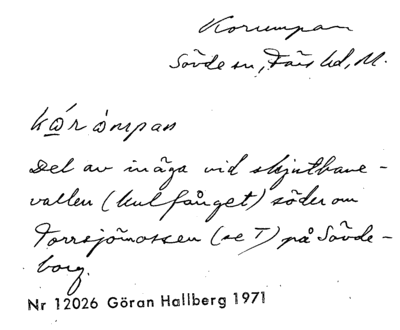 Korumpan
Sövde sn, Färs hd, M.
kǿ́r ȯmpan
Del av inäga vid skjutbane-
vallen (kulfånget) söder om
Torrsjömossen (se T) på Sövde-
borg.
Nr 12026 Göran Hallberg 1971